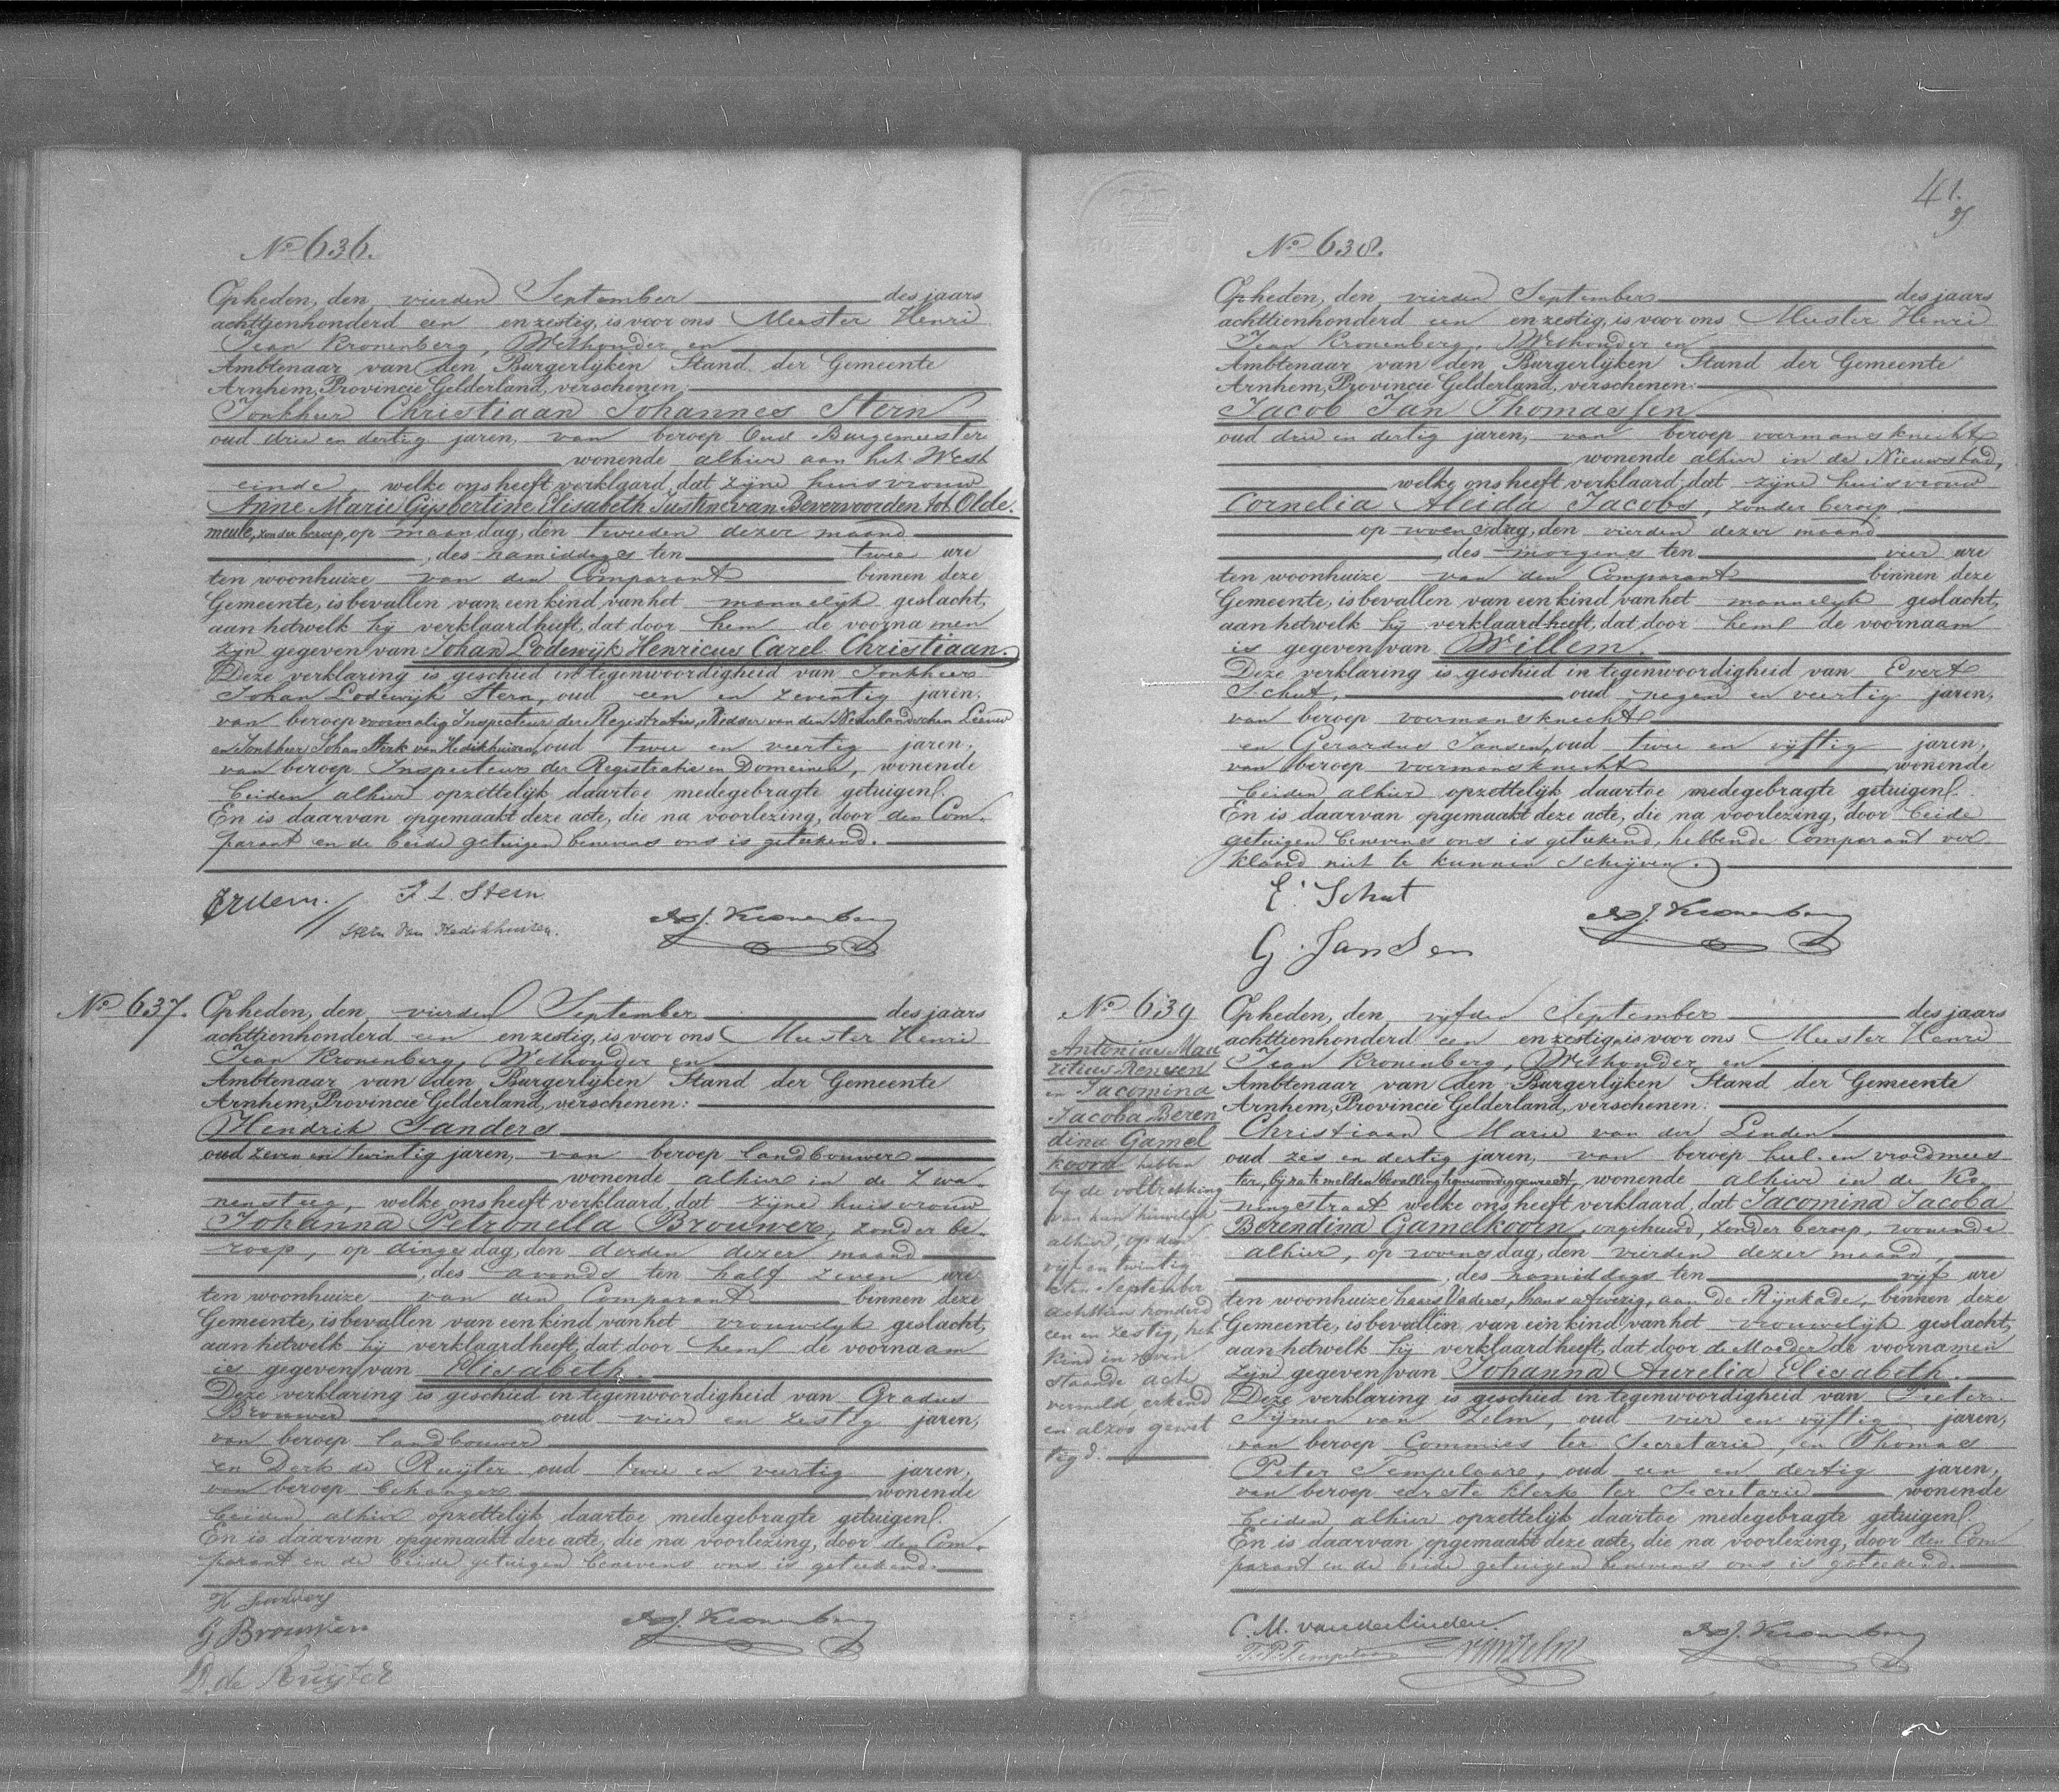 No 636.
Opheden, den vierden September des jaars
achttienhonderd een en zestig, is voor ons Meester Henri
Jean Kronenberg, Wethouder en
Ambtenaar van den Burgerlijken Stand der Gemeente
Arnhem, Provincie Gelderland, verschenen:
Jonkheer Christiaan Johannes Stern
oud drie en dertig jaren, van beroep Oud Burgemeester
wonende alhier aan het West
einde, welke ons heeft verklaard, dat zijne huisvrouw
Anne Marie Gijsbertine Elisabeth Justine van Bevervoorden tot Olde
meule, zonder beroep, op maandag, den tweeden dezer maand
, des namiddags ten twee ure
ten woonhuize van den Comparant binnen deze
Gemeente, is bevallen van een kind van het mannelijk geslacht,
aan hetwelk hij verklaard heeft, dat door hem de voornamen
zijn gegeven van Johan Lodewijk Henricus Carel Christiaan.
Deze verklaring is geschied in tegenwoordigheid van Jonkheer
Johan Lodewijk Stern, oud een en zeventig jaren,
van beroep voormalig Inspecteur der Registratie, Ridder van den Nederlandschen Leeuw
en Jonkheer Johan Sterk van Hedikhuizen, oud twee en veertig jaren,
van beroep Inspecteur der Registratie en Domeinen, wonende
beiden alhier opzettelijk daartoe medegebragte getuigen.
En is daarvan opgemaakt deze acte, die na voorlezing, door den Com
parant en de beide getuigen benevens ons is geteekend.
J. L. Stern
Stern Van Hedikhuizen.
HJ. Kronenberg
No 637.
Opheden, den vierden September des jaars
achttienhonderd een en zestig, is voor ons Meester Henri
Jean Kronenberg, Wethouder en
Ambtenaar van den Burgerlijken Stand der Gemeente
Arnhem, Provincie Gelderland, verschenen:
Hendrik Sanders
oud zeven en twintig jaren, van beroep landbouwer
wonende alhier in de Zwa
nensteeg, welke ons heeft verklaard, dat zijne huisvrouw
Johanna Petronella Brouwer, zonder be
roep, op dingsdag, den derden dezer maand
, des avonds ten half zeven ure
ten woonhuize van den Comparant binnen deze
Gemeente, is bevallen van een kind van het vrouwelijk geslacht,
aan hetwelk hij verklaard heeft, dat door hem de voornaam
is gegeven van Elisabeth.
Deze verklaring is geschied in tegenwoordigheid van Gradus
Brouwer oud vier en zestig jaren,
van beroep landbouwer
en Derk de Ruijter oud twee en veertig jaren,
van beroep behanger wonende
beiden alhier opzettelijk daartoe medegebragte getuigen.
En is daarvan opgemaakt deze acte, die na voorlezing, door den Com
parant en de beide getuigen benevens ons is geteekend.
H Sanders
G Brouwer
D. de Ruijter
HJ. Kronenberg
41.
No 638.
Opheden, den vierden September des jaars
achttienhonderd een en zestig, is voor ons Meester Henri
Jean Kronenberg, Wethouder en
Ambtenaar van den Burgerlijken Stand der Gemeente
Arnhem, Provincie Gelderland, verschenen:
Jacob Jan Thomassen
oud drie en dertig jaren, van beroep voermansknecht
wonende alhier in de Nieuwstad,
welke ons heeft verklaard, dat zijne huisvrouw
Cornelia Aleida Jacobs, zonder beroep,
op woensdag, den vierden dezer maand
, des morgens ten vier ure
ten woonhuize van den Comparant binnen deze
Gemeente, is bevallen van een kind van het mannelijk geslacht,
aan hetwelk hij verklaard heeft, dat door hem de voornaam
is gegeven van Willem.
Deze verklaring is geschied in tegenwoordigheid van Evert
Schut, oud negen en veertig jaren,
van beroep voermansknecht
en Gerardus Jansen, oud twee en vijftig jaren,
van beroep voermansknecht wonende
beiden alhier opzettelijk daartoe medegebragte getuigen.
En is daarvan opgemaakt deze acte, die na voorlezing, door beide
getuigen benevens ons is geteekend, hebbende Comparant ver
klaard niet te kunnen schrijven.
E. Schut
G. Jansen
HJ. Kronenberg
No 639
Antonius Mau
ritius Rensen
en Jacomina
Jacoba Beren
dina Gamel
koorn hebben
bij de voltrekking
van hun huwelijk
alhier, op den
vijf en twintig
sten September
achttien honderd
een en zestig, het
kind in neven
staande acte
vermeld erkend
en alzoo gewet
tigd.
Opheden, den vijfden September des jaars
achttienhonderd een en zestig, is voor ons Meester Henri
Jean Kronenberg, Wethouder en
Ambtenaar van den Burgerlijken Stand der Gemeente
Arnhem, Provincie Gelderland, verschenen:
Christiaan Marie van der Linden
oud zes en dertig jaren, van beroep heel- en vroedmees
ter, bij na te melden bevalling tegenwoordig geweest, wonende alhier in de Ko
ningstraat welke ons heeft verklaard, dat Jacomina Jacoba
Berendina Gamelkoorn, ongehuwd, zonder beroep, wonende
alhier, op woensdag, den vierden dezer maand,
, des namiddags ten vijf ure
ten woonhuize haars Vaders, thans afwezig, aan de Rijnkade, binnen deze
Gemeente, is bevallen van een kind van het vrouwelijk geslacht,
aan hetwelk hij verklaard heeft, dat door de Moeder de voornamen
zijn gegeven van Johanna Aurelia Elisabeth.
Deze verklaring is geschied in tegenwoordigheid van Pieter
Sijmen van Zelm, oud vier en vijftig jaren,
van beroep Commies ter Secretarie, en Thomas
Peter Tempelaars, oud een en dertig jaren,
van beroep eerste klerk ter Secretarie wonende
beiden alhier opzettelijk daartoe medegebragte getuigen.
En is daarvan opgemaakt deze acte, die na voorlezing, door den Com
parant en de beide getuigen benevens ons is geteekend.
C. M. van der Linden.
T. P. Tempelaars
van Zelm
HJ. Kronenberg